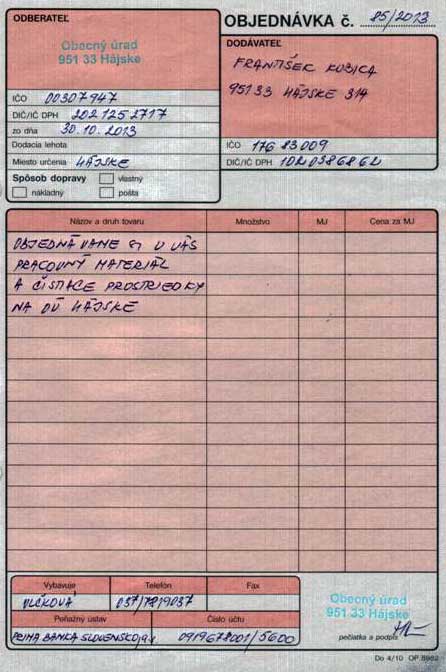 ODBERATEĽ
Obecný úrad
951 33 Hájske
IČO 00307947
DIČ/IČ DPH 2021252717
zo dňa 30.10.2013
Dodacia lehota
Miesto určenia HÁJSKE
Spôsob dopravy
vlastný
nákladný
pošta
OBJEDNÁVKA č. 85/2013
DODÁVATEĽ
FRANTIŠEK KUBICA
95133 HÁJSKE 314
IČO 176 83 009
DIČ/IČ DPH 1020386862
Názov a druh tovaru Množstvo MJ Cena za MJ
OBJEDNÁVAME SI U VÁS
PRACOVNÝ MATERIÁL
A ČISTIACE PROSTRIEDKY
NA OÚ HÁJSKE
Vybavuje Telefón Fax
VLČKOVÁ 037/7819037
Peňažný ústav Číslo účtu
BANKA SLOVENSKO, 0919678001/5600
Obecný úrad
951 33 Hájske
pečiatka a podpis
Do 4/10 OP 8982